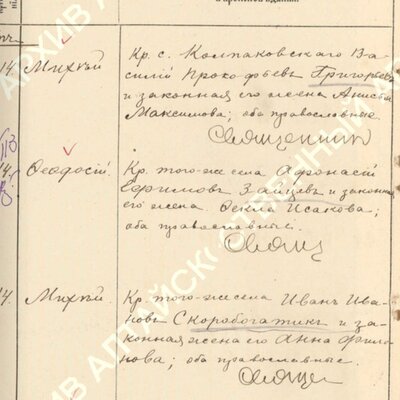 14. Михей
Кр. с. Колпаковскаго Ва-
силий Прокофьевъ Григорьев
и законная его жена Анисья
Максимова; оба православные.
Священник
14. Феодосій.
Кр. того-же села Афонасій
Ефимовъ Зайцевъ и законная
его жена Фекла Исакова;
оба православные.
Свящ
14. Михей
Кр. того-же села Иванъ Ива-
новъ Скоробогатикъ и за-
конная жена его Анна Фили-
нова; оба православные.
Священ
АРХИВ АЛТАЙСК
АРСТВЕННЫЙ